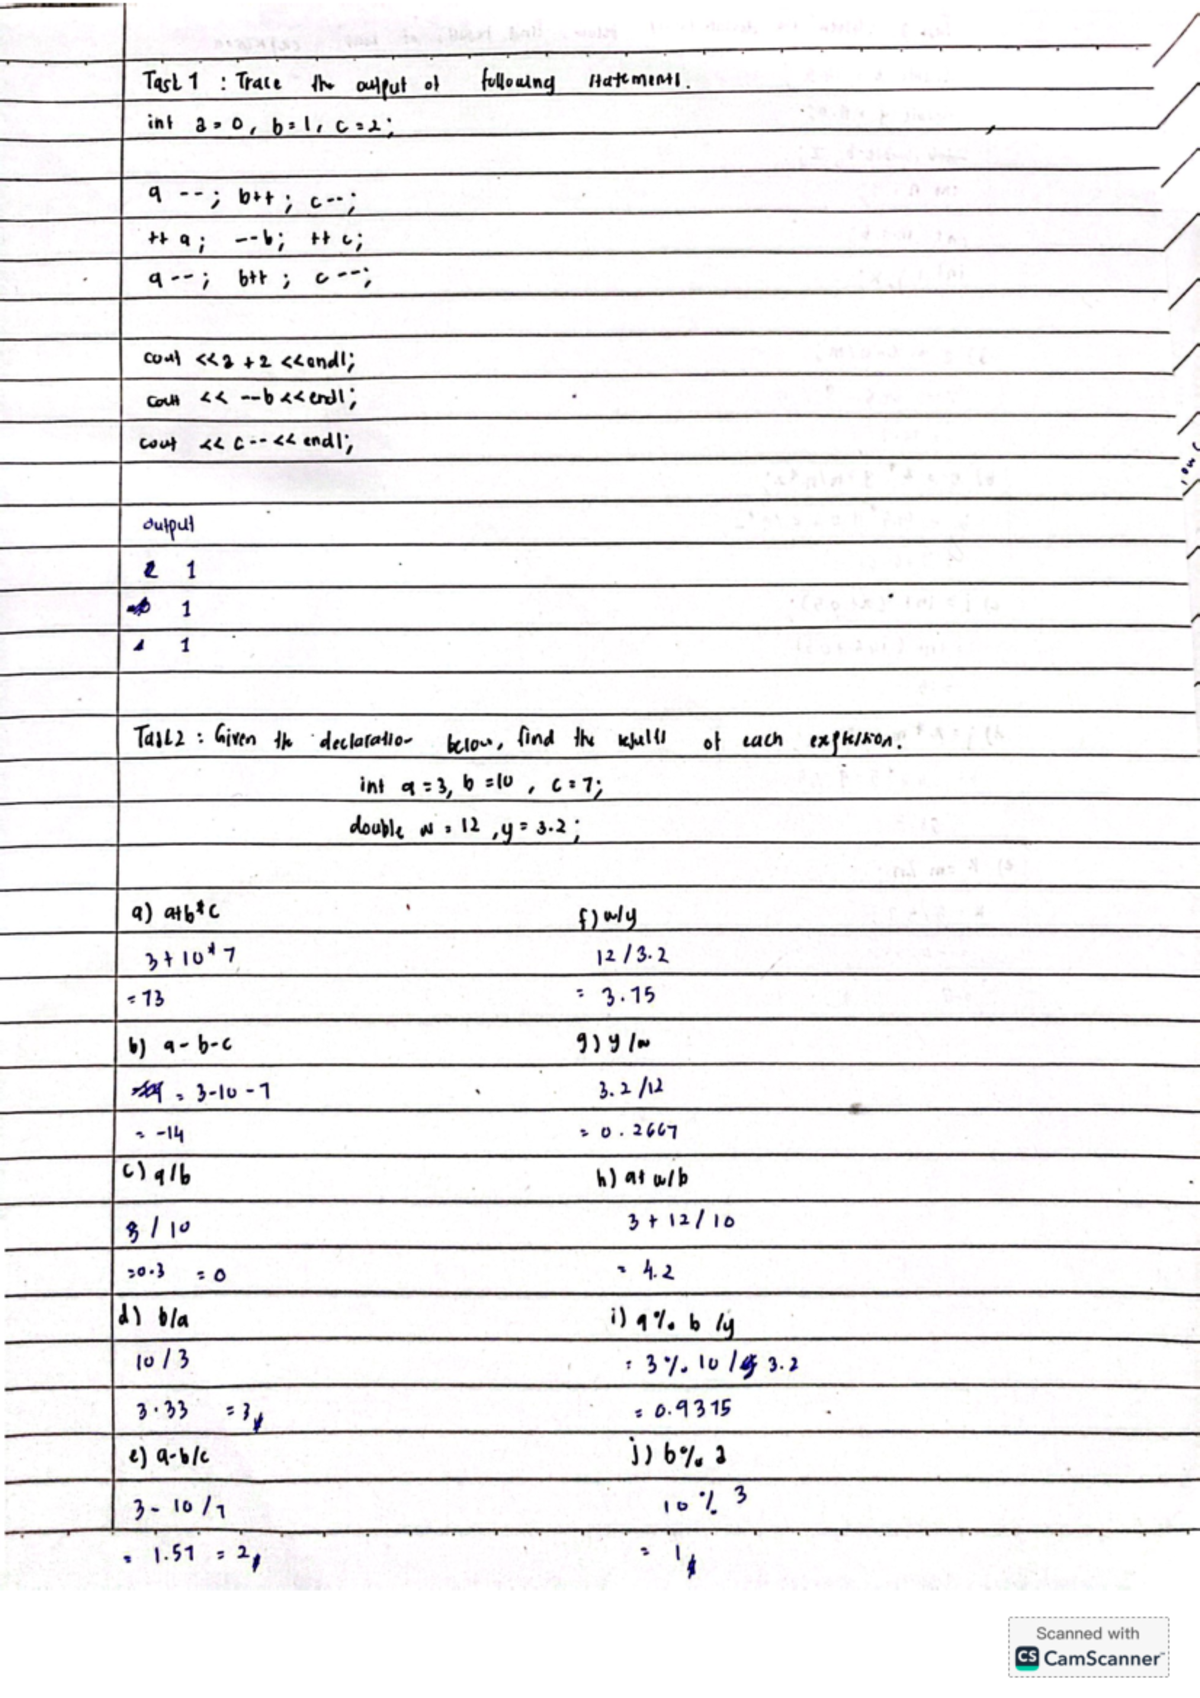 Task 1 : Trace the output of following statements.
int a = 0, b = 1, c = 2;
a --; b++; c--;
++ a; --b; ++ c;
a --; b++; c--;
cout << a + 2 << endl;
cout << --b << endl;
cout << c-- << endl;
output
1
1
1
Task 2 : Given the declaration below, find the results of each expression.
int a = 3, b = 10, c = 7;
double w = 12, y = 3.2;
a) a+b*c
3 + 10 * 7
= 73
b) a - b - c
= 3-10-7
= -14
c) a/b
3 / 10
= 0.3 = 0
d) b/a
10 / 3
3.33 = 3
e) a-b/c
3 - 10 / 7
= 1.57 = 2
f) w/y
12 / 3.2
= 3.75
g) y/w
3.2 / 12
= 0.2667
h) a+ w/b
3 + 12 / 10
= 4.2
i) a % b / y
= 3 % 10 / 3.2
= 0.9375
j) b % a
10 % 3
= 1
Scanned with
CS CamScanner